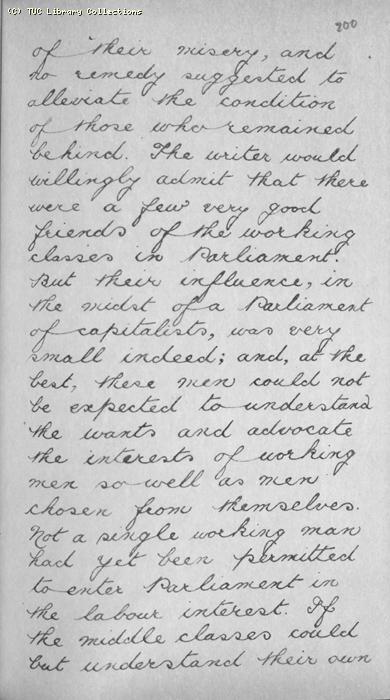 (C) TUC Library Collections
200
of their misery, and
no remedy suggested to
alleviate the condition
of those who remained
behind. The writer would
willingly admit that there
were a few very good
friends of the working
classes in Parliament.
But their influence, in
the midst of a Parliament
of capitalists, was very
small indeed; and, at the
best, these men could not
be expected to understand
the wants and advocate
the interests of working
men so well as men
chosen from themselves.
Not a single working man
had yet been permitted
to enter Parliament in
the labour interest. If
the middle classes could
but understand their own